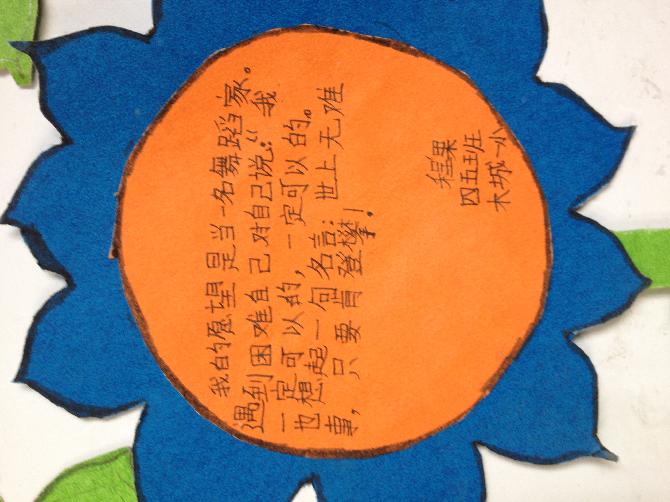 我的愿望是当一名舞蹈家。
遇到困难自己对自己说：“我
一定可以的，一定可以的。
也想起一句名言：世上无难
事，只要肯登攀！
程果
四五班
木城一小